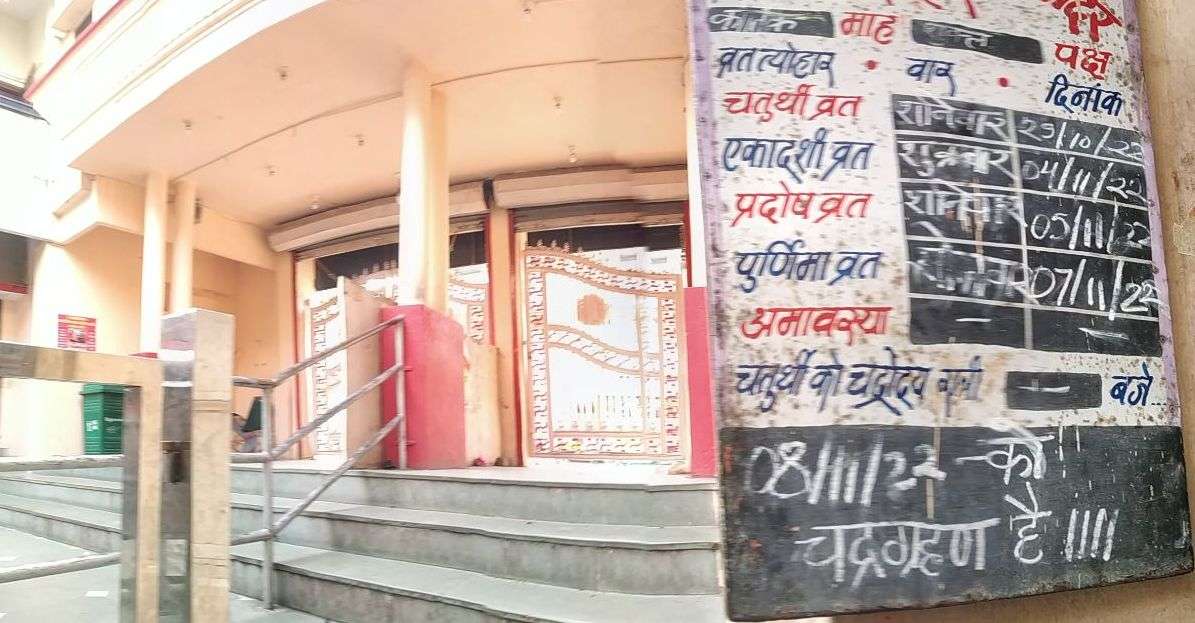 कार्तिक माह शुक्ल पक्ष
व्रत त्योहार • वार • दिनांक
चतुर्थी व्रत शनिवार 29/10/22
एकादशी व्रत शुक्रवार 04/11/22
प्रदोष व्रत शनिवार 05/11/22
पुर्णिमा व्रत सोमवार 07/11/22
अमावस्या — —
चतुर्थी को चंद्रोदय रात्री — बजे...
08/11/22 - को
चद्रग्रहण है